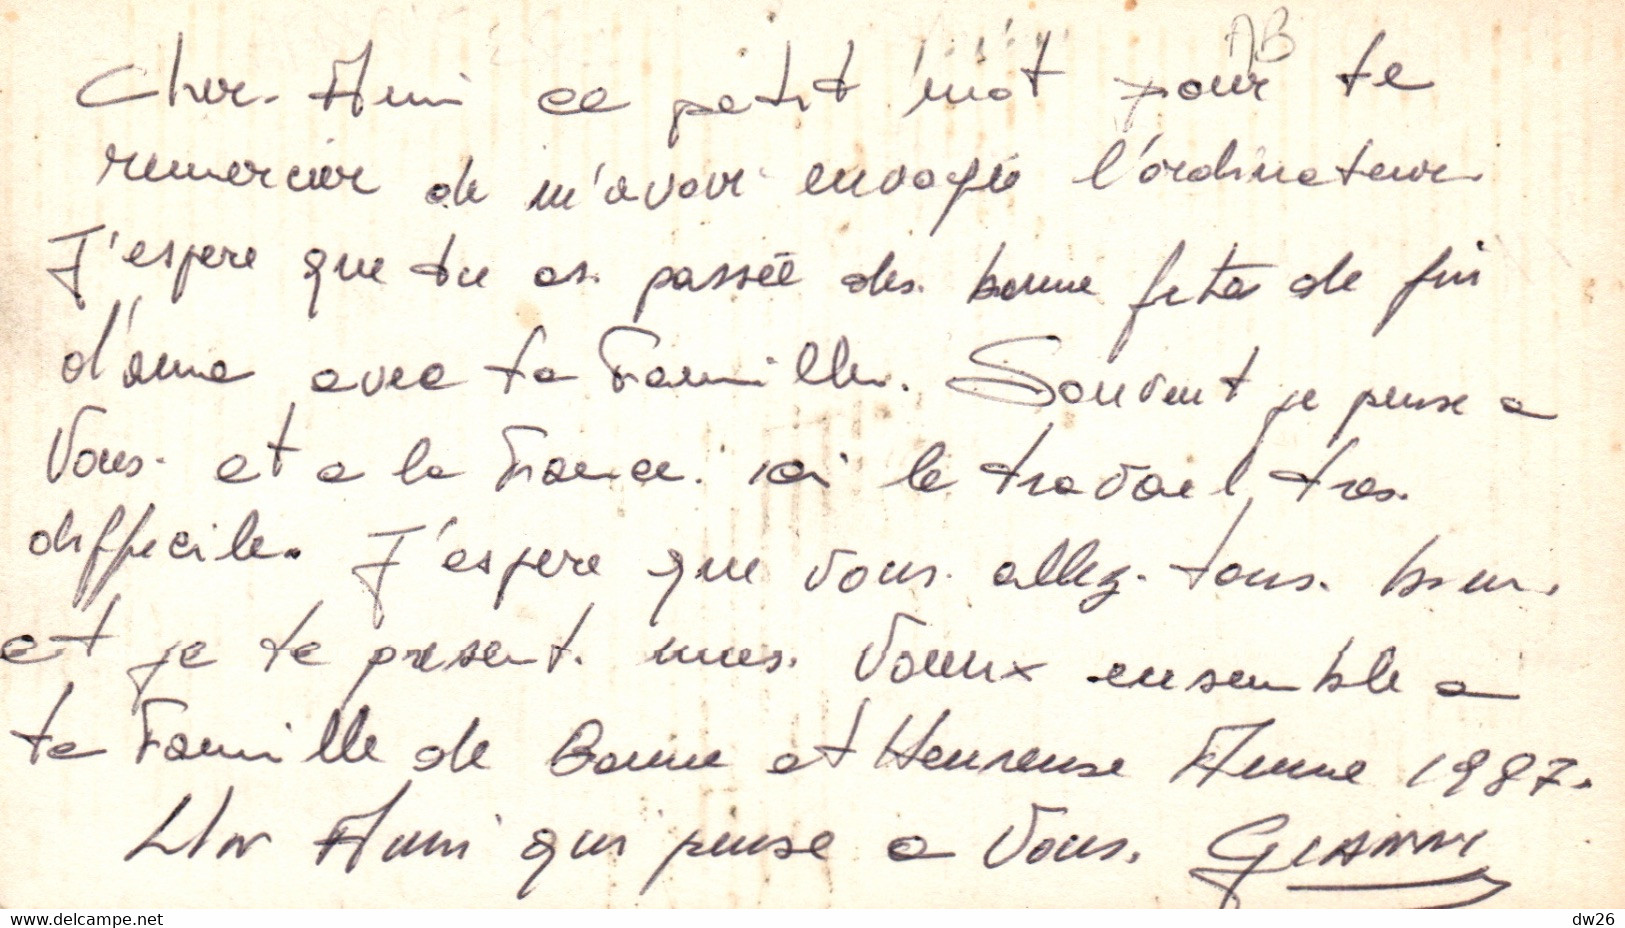 AB
Cher. Ami ce petit mot pour te
remercier de m'avoir envoyié l'ordinateur.
J'espere que tu as. passée des. bonne fetes de fin
d'anne avec ta Famille. Souvent je pense a
Vous. et a la France. ici le travail tres.
difficile. J'espere que vous. allez. tous. bien.
et je te present. mes. Voeux ensemble a
ta Famille de Bonne et Heureuse Anne 1987.
Un Ami qui pense a Vous. GIANNI
www.delcampe.net
dw26